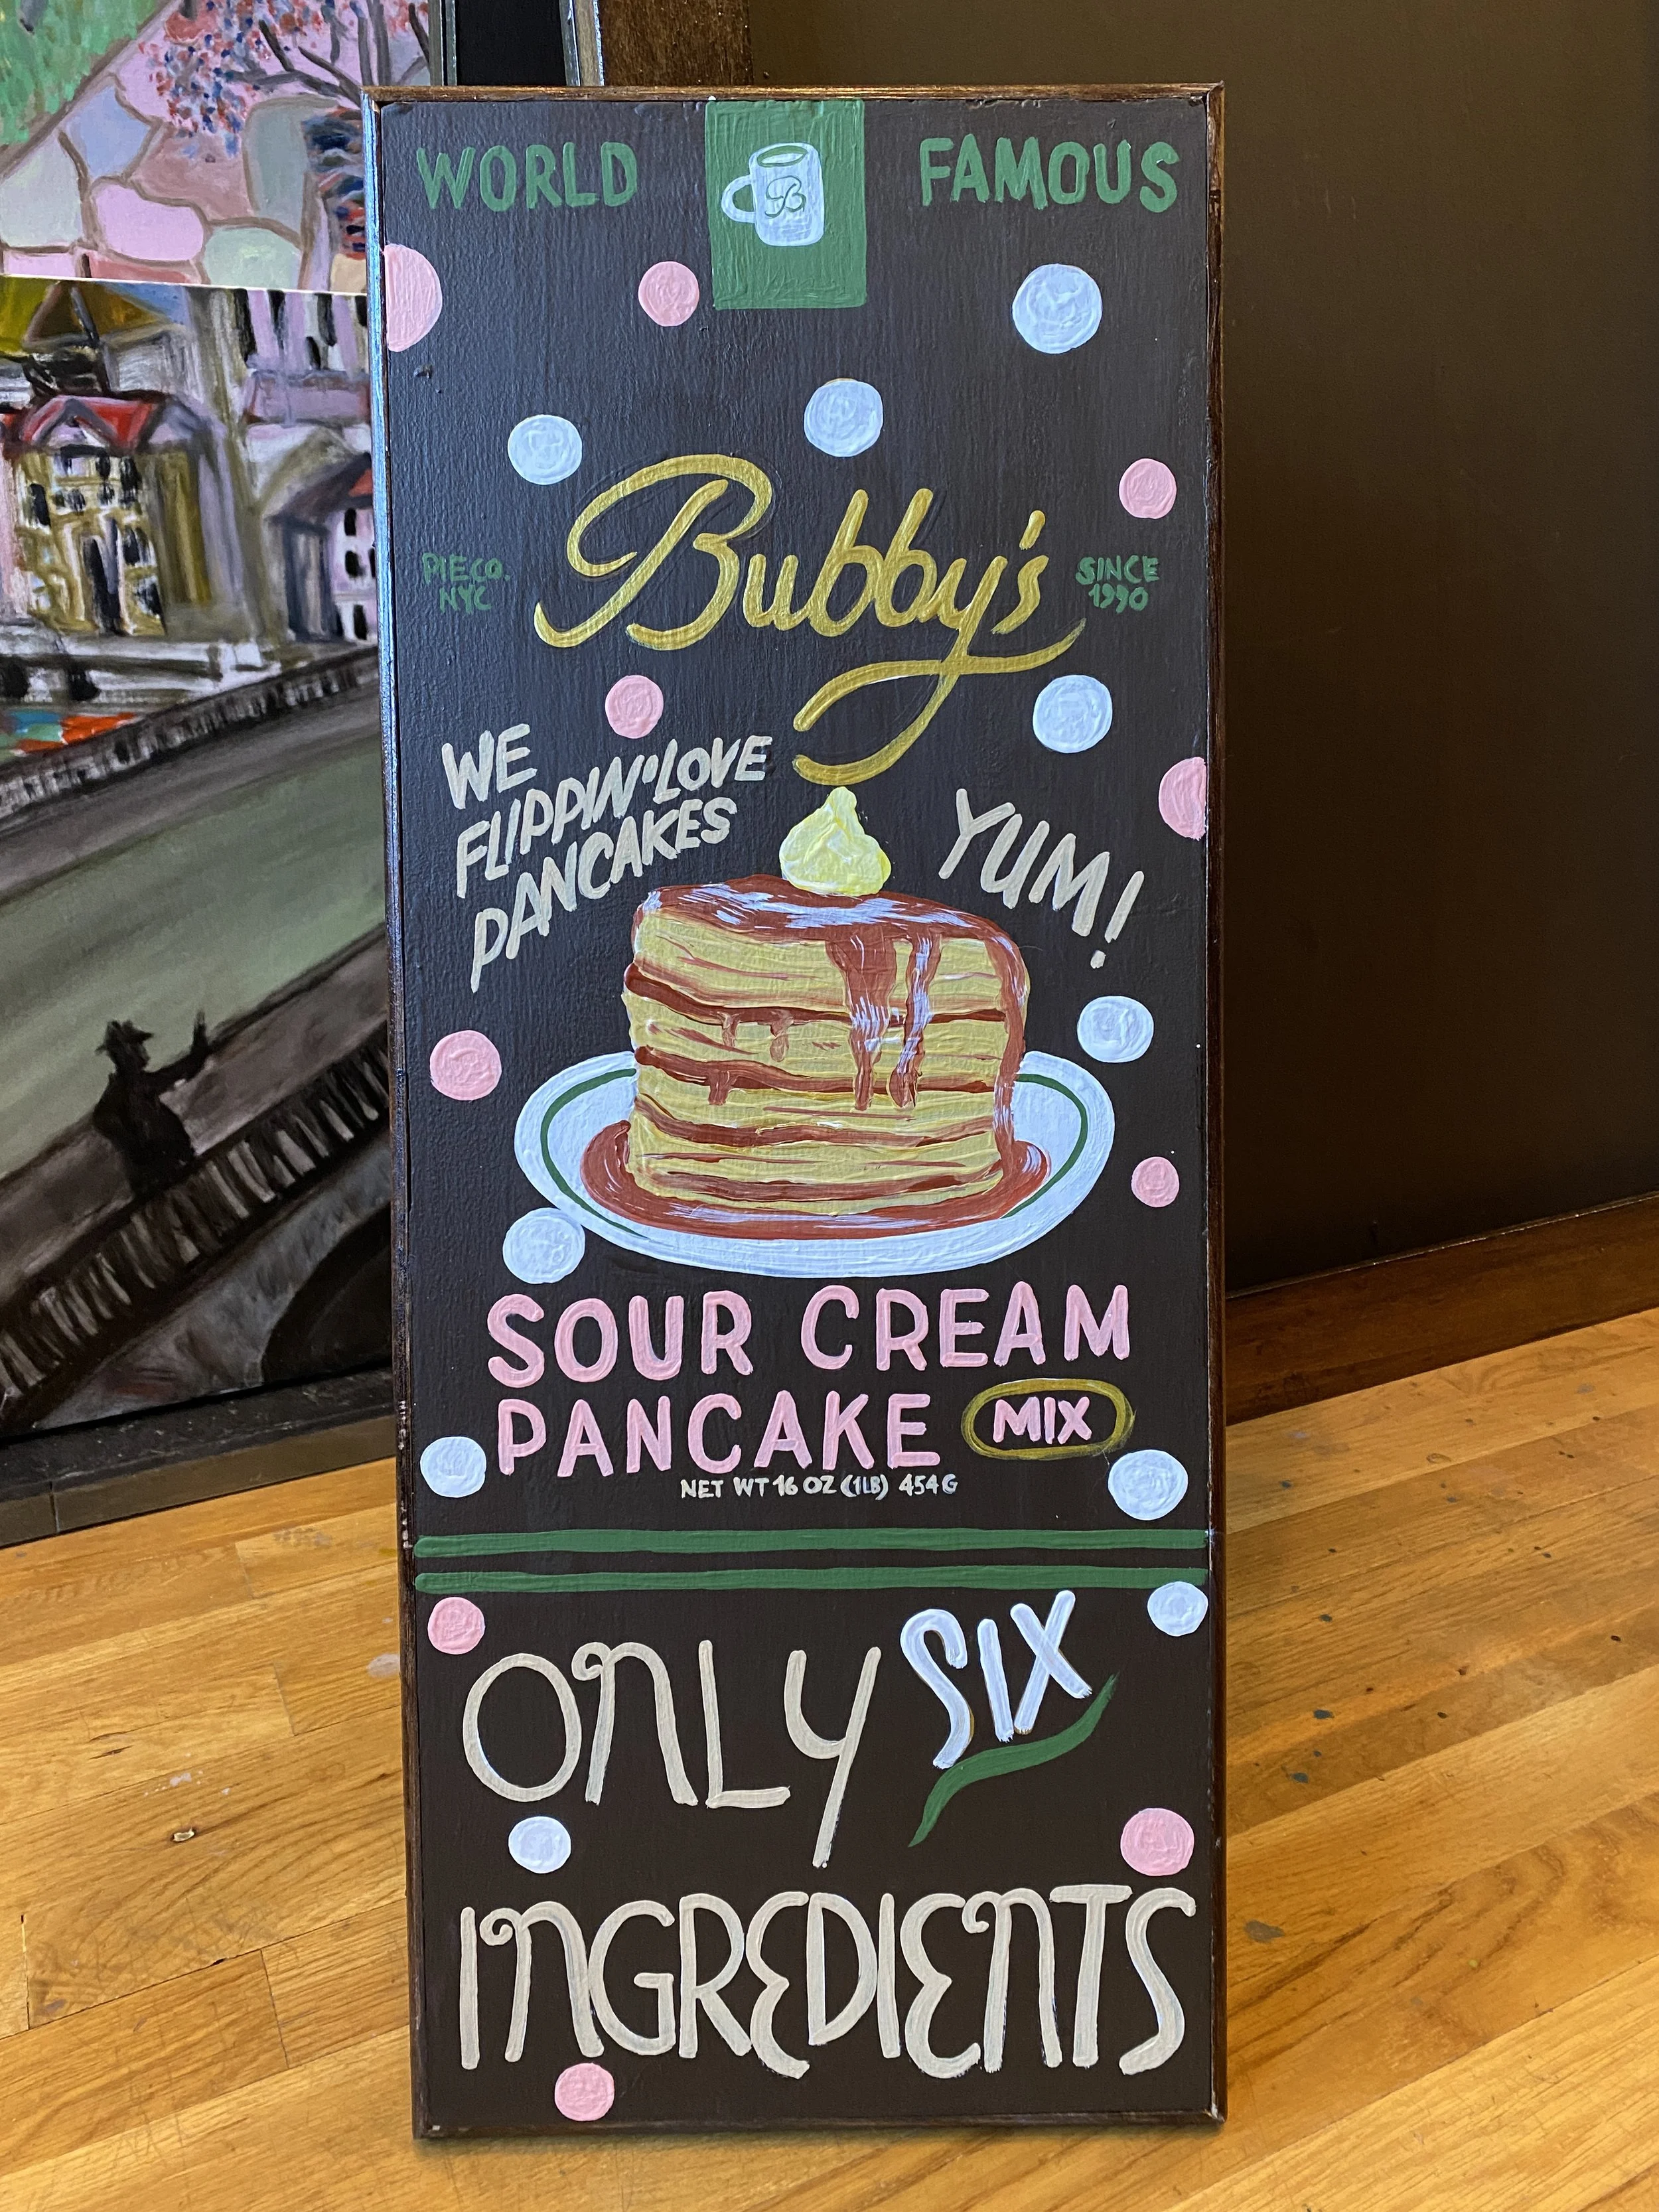 WORLD FAMOUS
B
Bubby's
PIE CO.
NYC
SINCE
1990
WE
FLIPPIN' LOVE
PANCAKES
YUM!
SOUR CREAM
PANCAKE MIX
NET WT 16 OZ (1LB) 454G
ONLY SIX
INGREDIENTS